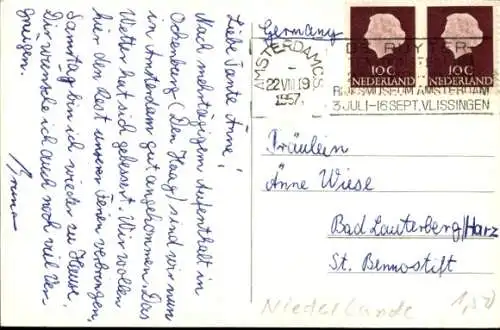 Liebe Tante Änne!
Nach mehrtägigem Aufenthalt in
Ockenburg (Den Haag) sind wir nun
in Amsterdam gut angekommen. Das
Wetter hat sich gebessert. Wir wollen
hier den Rest unserer Ferien verbringen.
Samstag bin ich wieder zu Hause.
Dir wünsche ich auch noch viel Ver-
gnügen.
Germany
AMSTERDAM C.S.
22 VIII 19
1957
DE RUYTER-
RIJKSMUSEUM AMSTERDAM
3 JULI-16 SEPT. VLISSINGEN
10 C
NEDERLAND
10 C
NEDERLAND
Fräulein
Änne Wiese
Bad Lauterberg/Harz
St. Bennostift
Niederlande
1,50